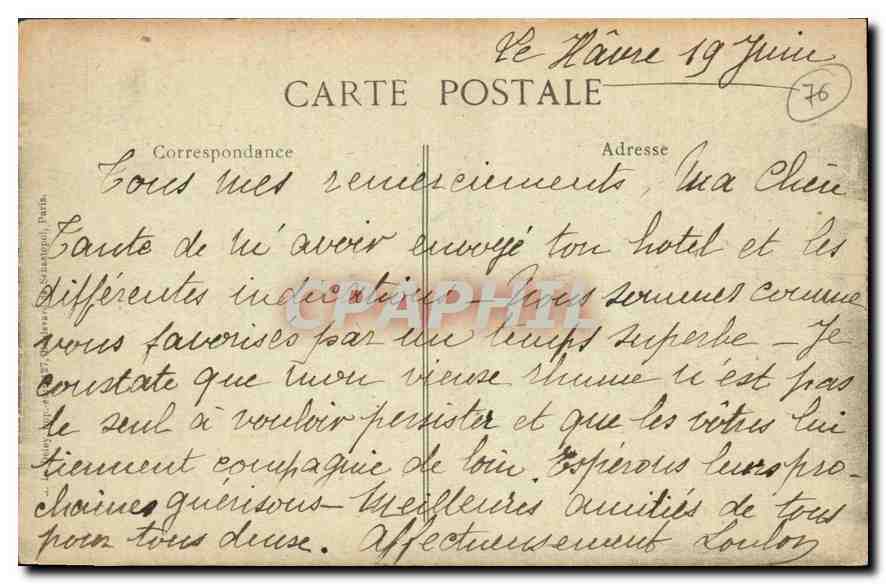 Le Hâvre 19 Juin
76
CARTE POSTALE
Correspondance
Adresse
Tous mes remerciements, Ma Chère
Tante de m'avoir envoyé ton hotel et les
différentes indications - Nous sommes comme
vous favorisés par un temps superbe - Je
constate que mon vieux rhume n'est pas
le seul à vouloir persister et que les vôtres lui
tiennent compagnie de loin. Espérons leurs pro-
chaines guérisons - Meilleures amitiés de tous
pour tous deux. Affectueusement Loulou
Sébastopol, Paris.
CPAPHIL